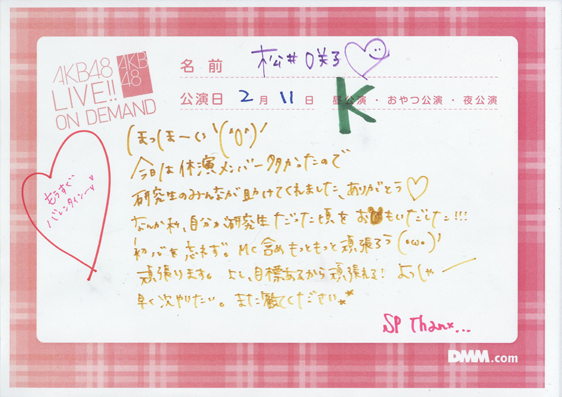 AKB48
LIVE!!
ON DEMAND
AKB
48
名前 松井咲子
公演日 2月11日 昼公演・おやつ公演・夜公演
K
ほっほーい
今日は休演メンバー多かったので
研究生のみんなが助けてくれました、ありがとう♡
なんか私、自分が研究生だった頃をおもいだした!!!
初心を忘れず。MC含めもっともっと頑張ろう(・ω・)
頑張ります。よし、目標あるから頑張れる! よっしゃー
早く次やりたい。また観てください
もうすぐ
バレンタイン〜
SP Thanx...
DMM.com